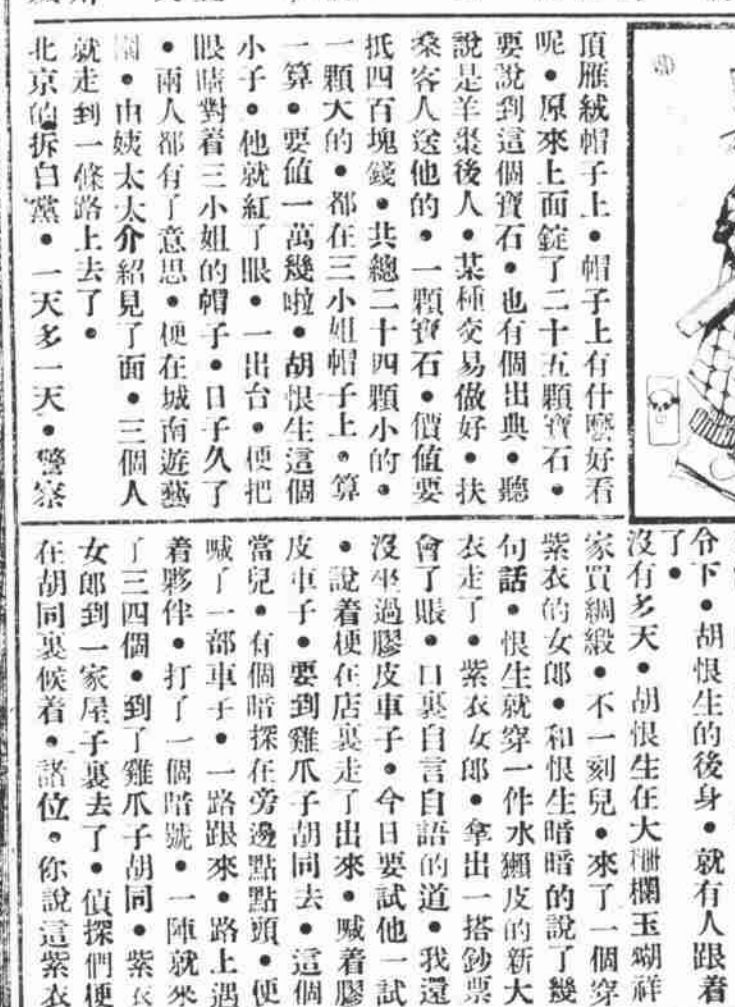 頂雁絨帽子上•帽子上有什麼好看
呢•原來上面錠了二十五顆寶石•
要說到這個寶石•也有個出典•聽
說是羊棗後人•某種交易做好•扶
桑客人送他的•一顆寶石•價值要
抵四百塊錢•共總二十四顆小的•
一顆大的•都在三小姐帽子上•算
一算•要值一萬幾啦•胡恨生這個
小子•他就紅了眼•一出台•便把
眼睛對着三小姐的帽子•日子久了
•兩人都有了意思•便在城南遊藝
園•由姨太太介紹見了面•三個人
就走到一條路上去了•
北京的拆白黨•一天多一天•警察
令下•胡恨生的後身•就有人跟着
了•
沒有多天•胡恨生在大柵欄玉蝴祥
家買綢緞•不一刻兒•來了一個穿
紫衣的女郎•和恨生暗暗的說了幾
句話•恨生就穿一件水獺皮的新大
衣走了•紫衣女郎•拿出一搭鈔票
會了賬•口裏自言自語的道•我還
沒坐過膠皮車子•今日要試他一試
•說着便在店裏走了出來•喊着膠
皮車子•要到雞爪子胡同去•這個
當兒•有個暗探在旁邊點點頭•便
喊了一部車子•一路跟來•路上遇
着夥伴•打了一個暗號•一陣就來
了三四個•到了雞爪子胡同•紫衣
女郎到一家屋子裏去了•偵探們便
在胡同裏候着•諸位•你說這紫衣